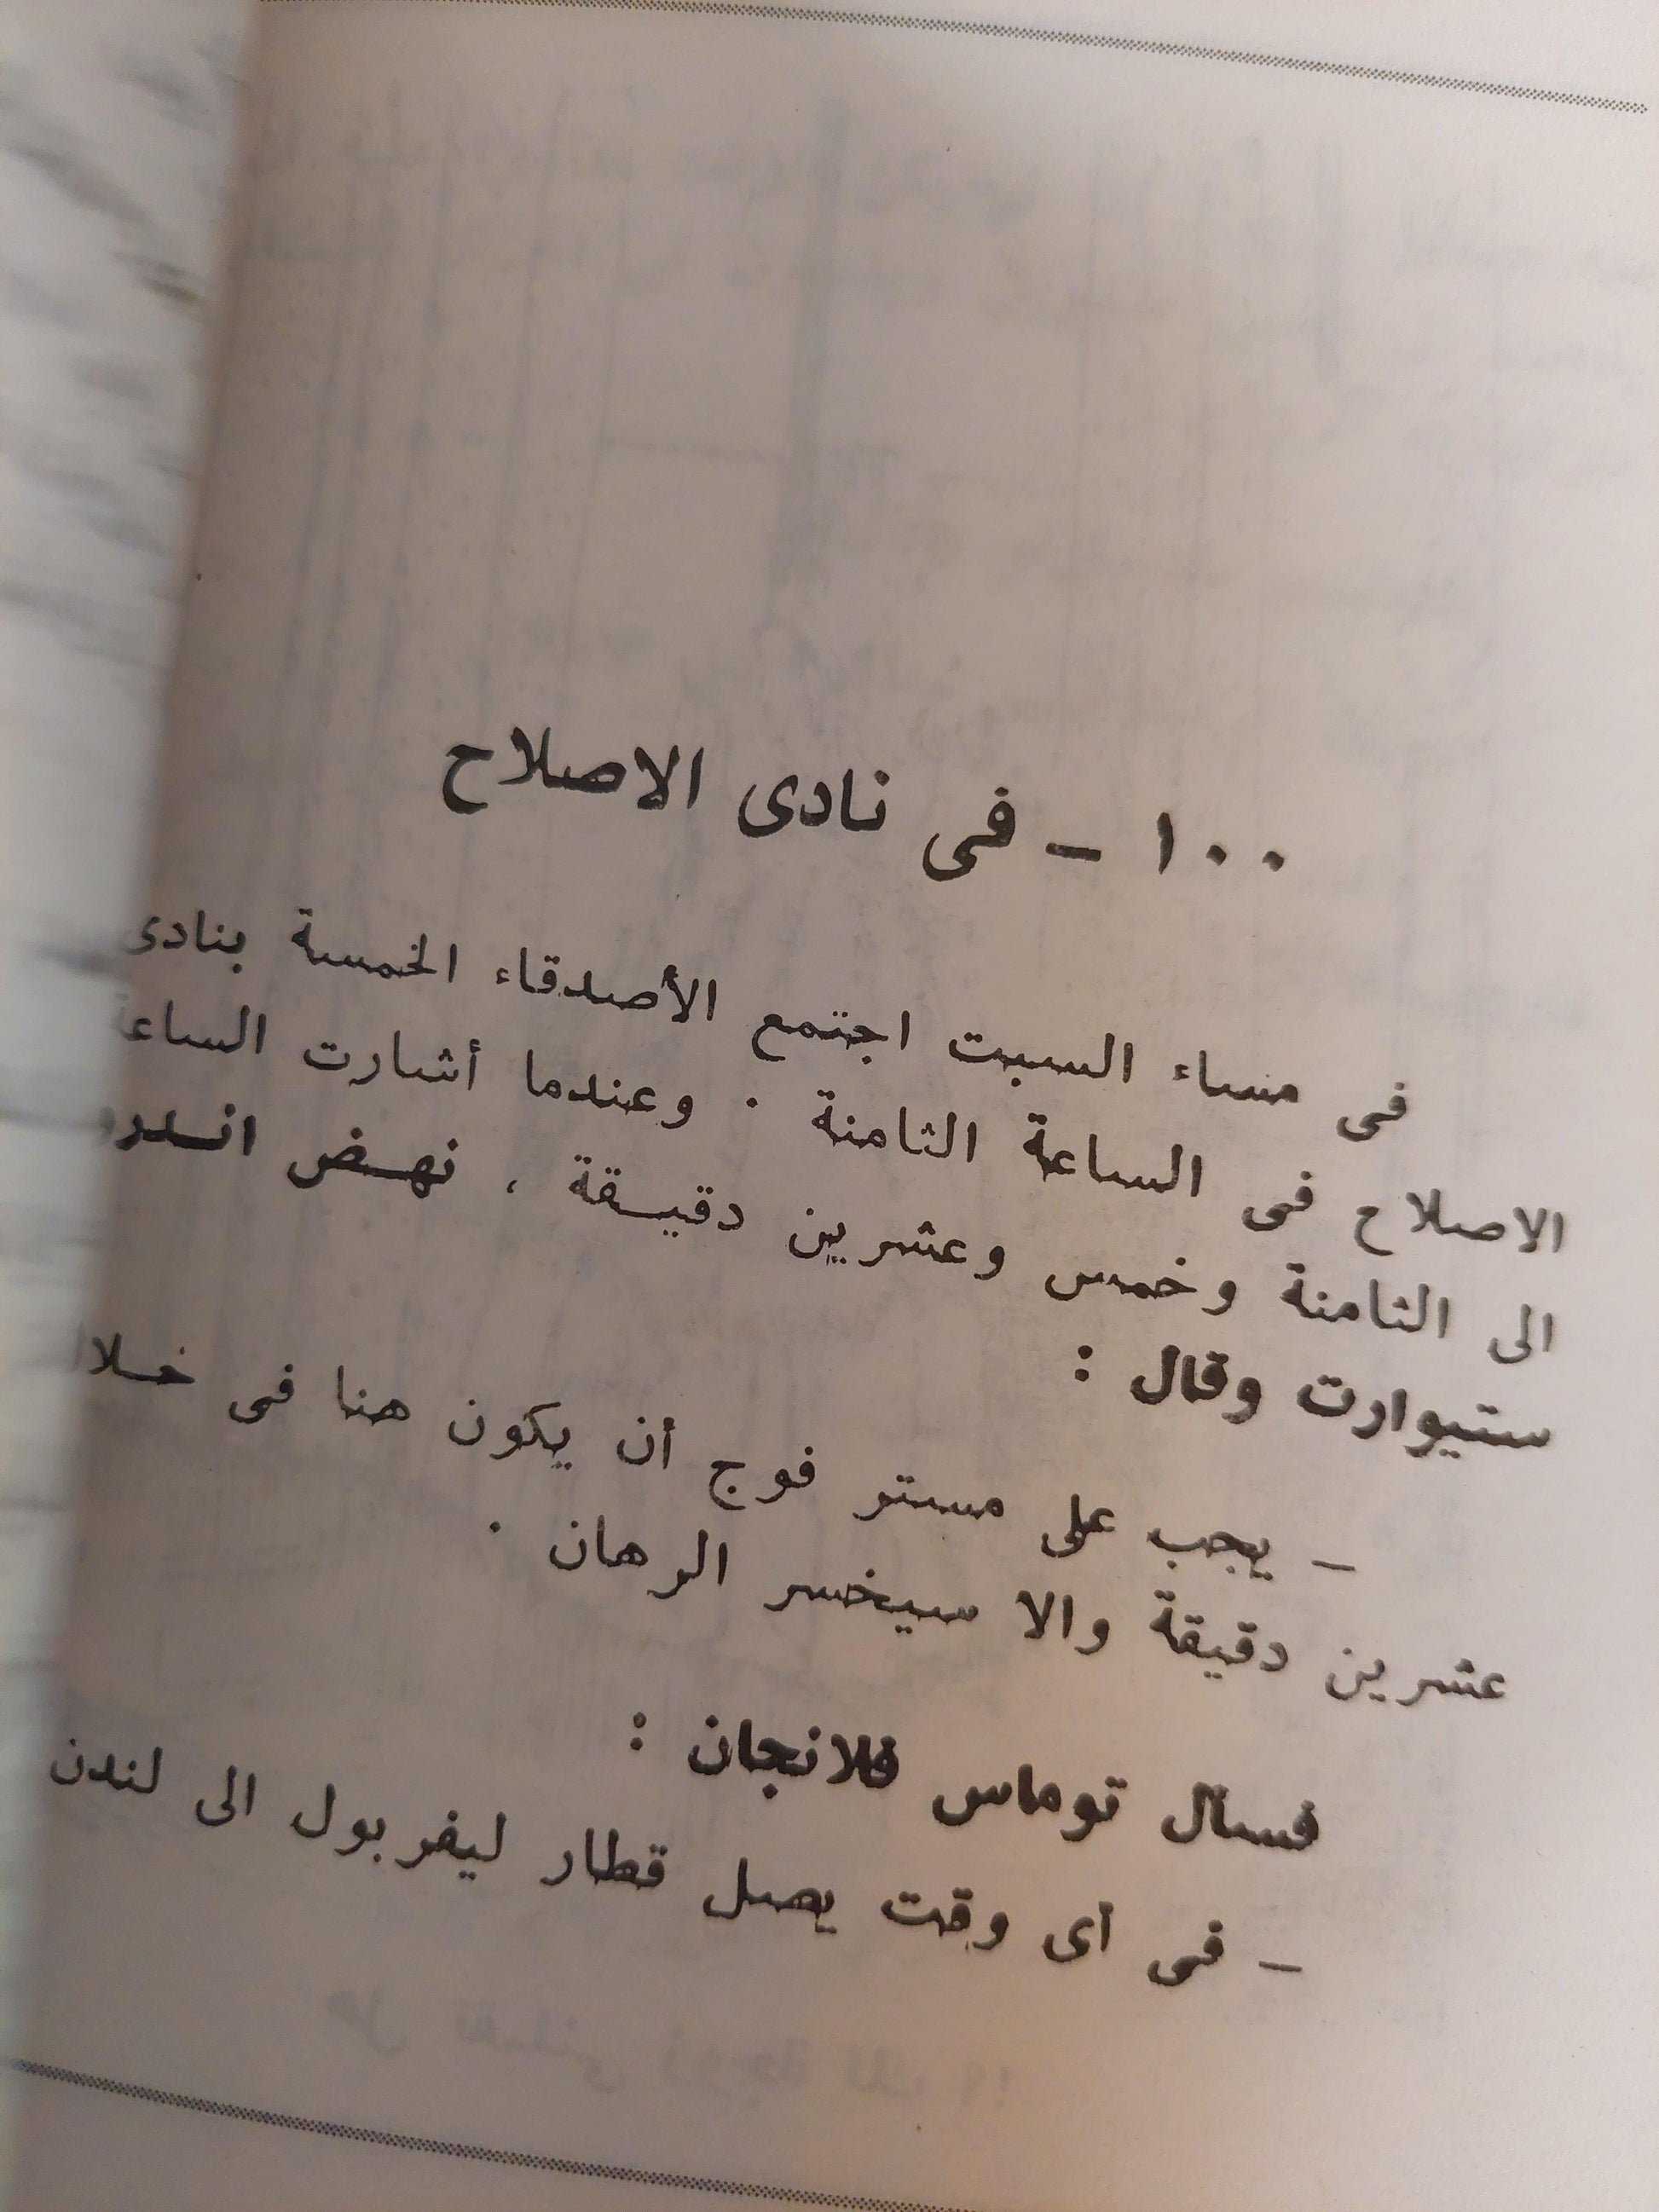 ١٠٠ ـ فى نادى الاصلاح
فى مساء السبت اجتمع الأصدقاء الخمسة بنادى
الاصلاح فى الساعة الثامنة . وعندما أشارت الساعة
الى الثامنة وخمس وعشرين دقيـقة ، نهـض انـدرو
ستيوارت وقال :
ـ يجب على مستر فوج أن يكون هنا فى خـلال
عشرين دقيقة والا سيخسر الرهان .
فسأل توماس فلانجان :
ـ فى أى وقت يصل قطار ليفربول الى لندن